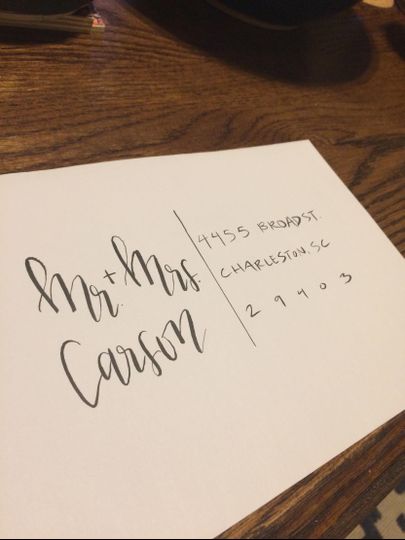 Mr. + Mrs.
Carson
4455 BROAD ST.
CHARLESTON, SC
29403